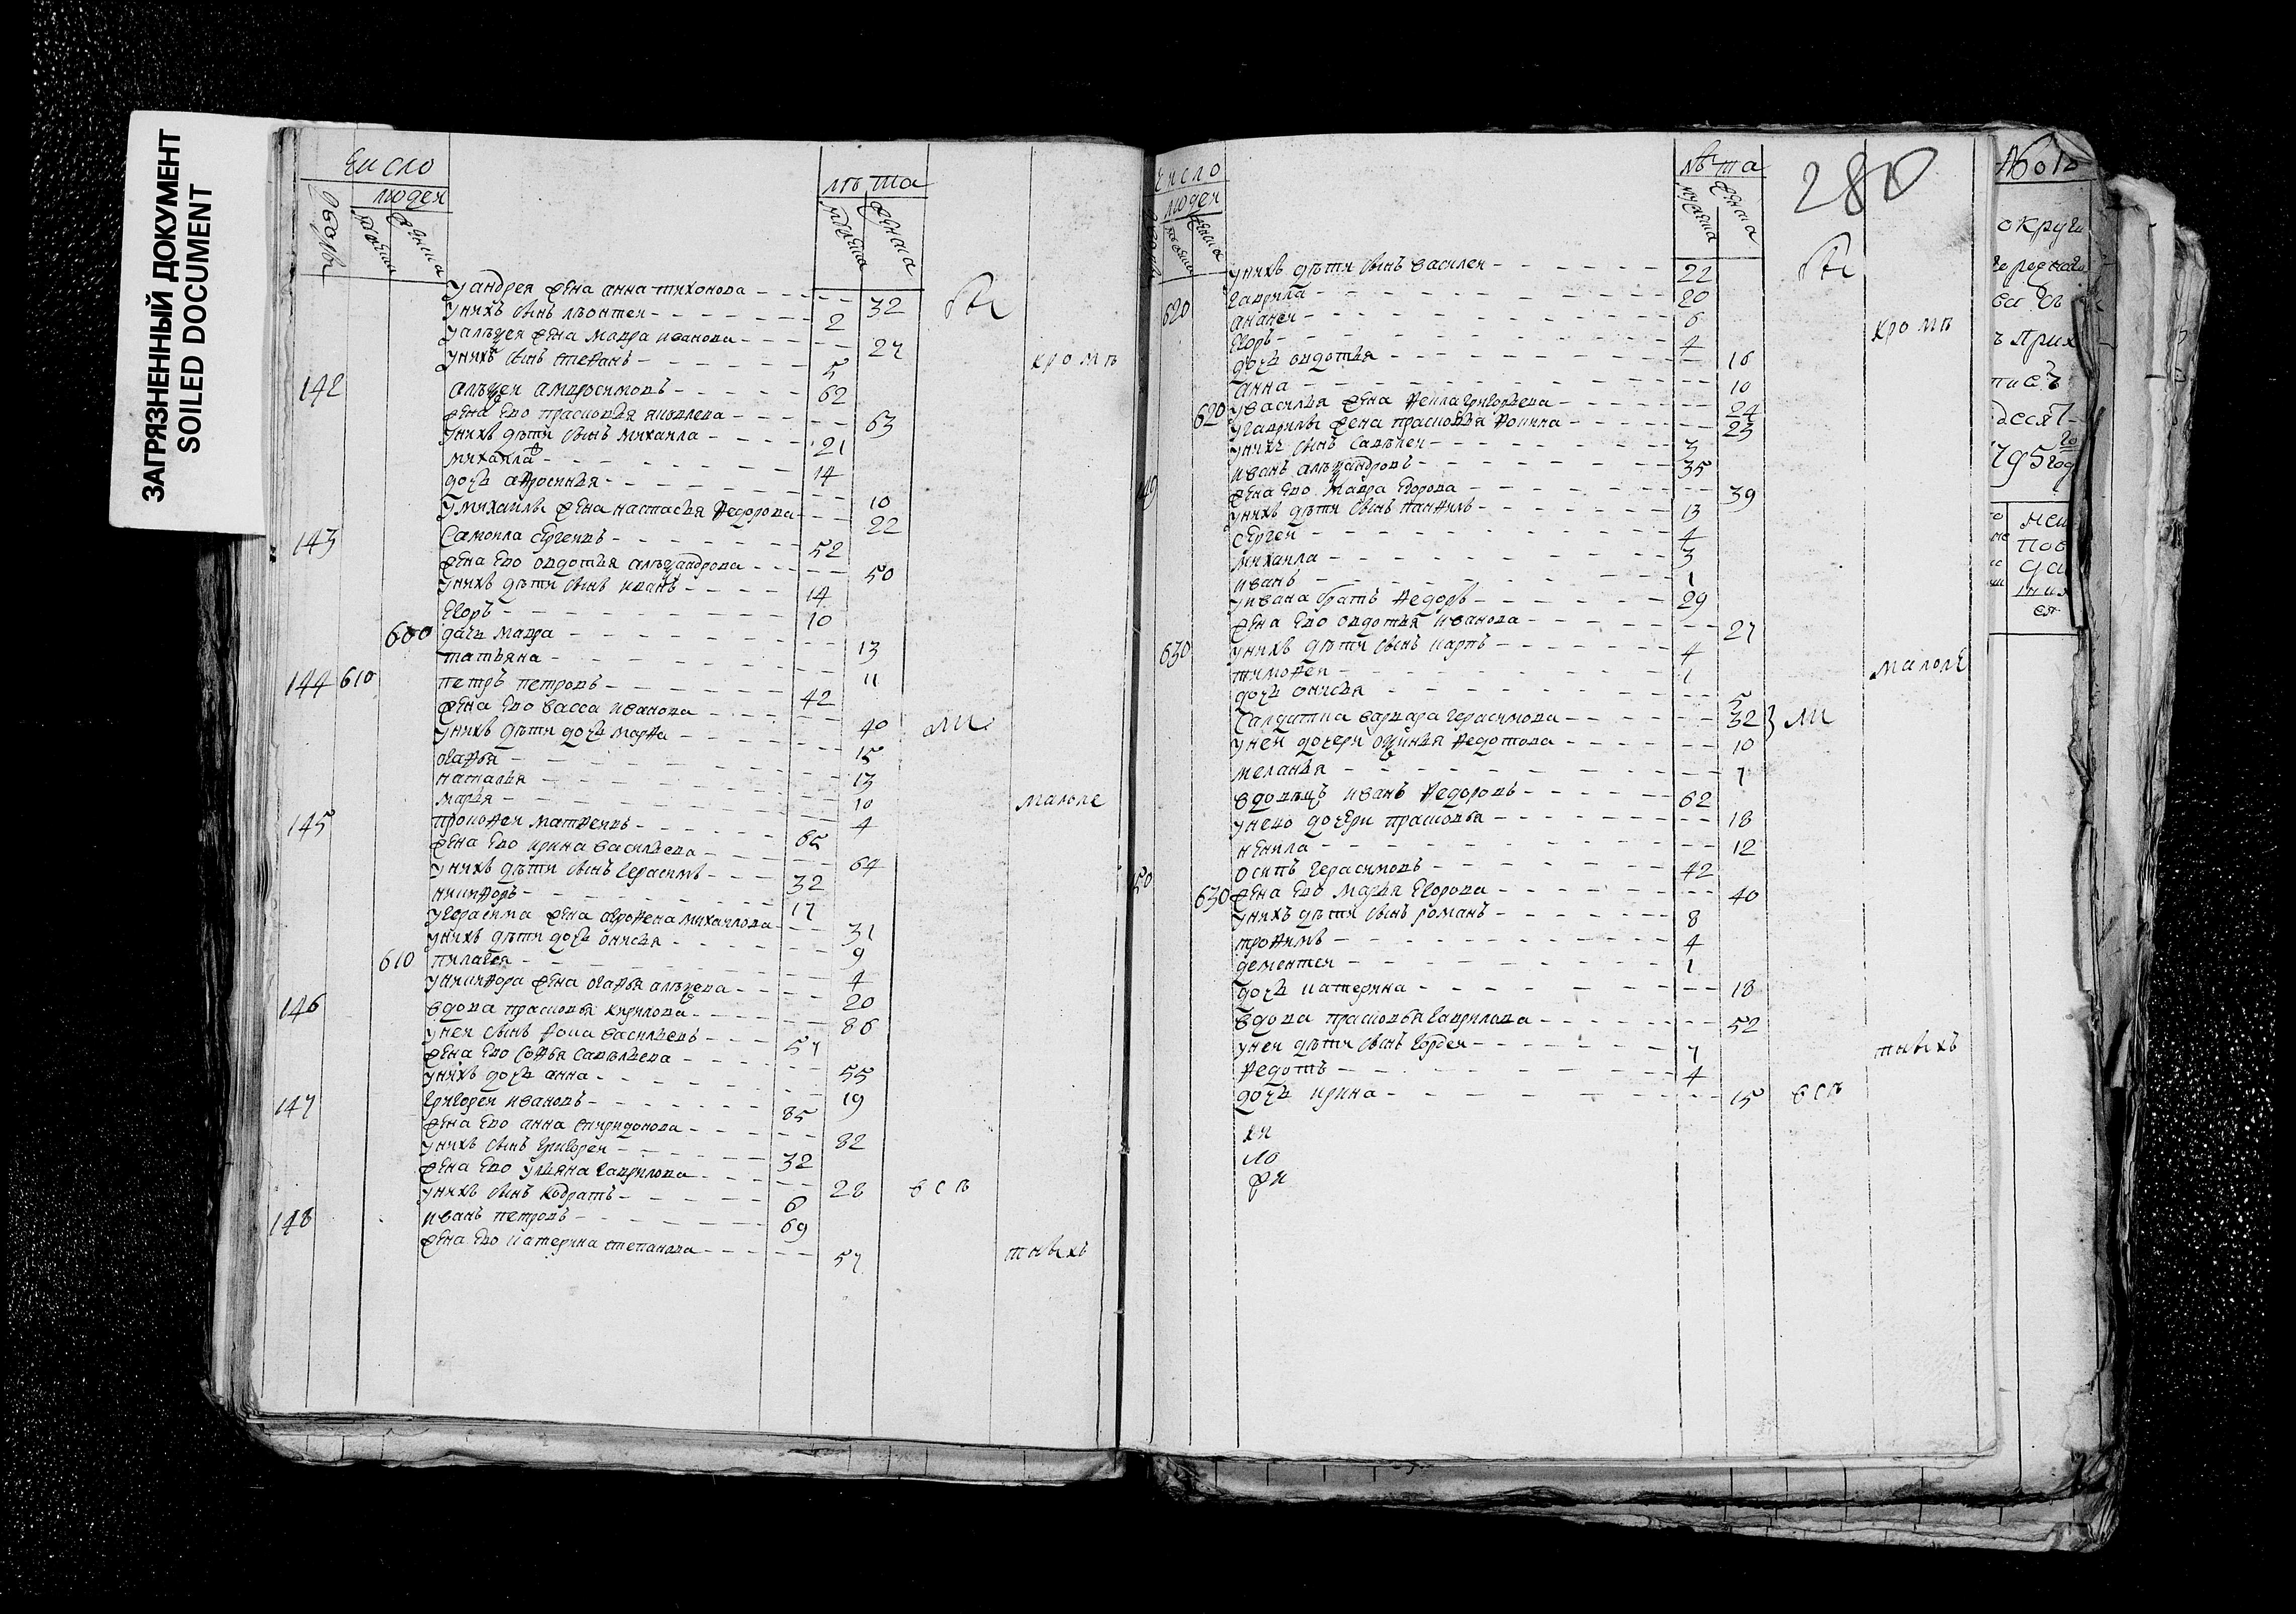 ЗАГРЯЗНЕННЫЙ ДОКУМЕНТ
SOILED DOCUMENT
число
людей
лѣта
у андрея жена анна тихонова 32
унихъ сынъ лѣонтей 2
у алѣѯея жена мавра иванова 27
унихъ сынъ степанъ 5
кромѣ
142 алѣѯей амбросимовъ 62
жена ево прасковья яковлева 63
унихъ дѣти сынъ михаила 21
михайла 14
дочь афросинья 10
умихаилы жена настасья федорова 22
143 Самоила сергеевъ 52
жена ево овдотья алѣѯандрова 50
унихъ дѣти сынъ иванъ 14
Егоръ 10
600 дочь мавра 13
татьяна 11
144 610 петръ петровъ 42
жена ево васса иванова 40
ли
унихъ дѣти дочь марфа 15
огафья 13
наталья 10
марья 4
малоле
145 прокофей матфеевъ 65
жена ево ирина васильева 64
унихъ дѣти сынъ герасимъ 32
никифоръ 17
угерасима жена агрофена михаилова 31
унихъ дѣти дочь онисья 9
610 пилагея 4
уникифора жена огафья алѣѯева 20
146 вдова прасковья кирилова 86
унея сынъ фока васильевъ 57
жена ево софья савѣльева 55
унихъ дочь анна 19
147 григорей ивановъ 85
жена ево анна спиридонова 82
унихъ сынъ григорей 32
жена ево ульяна гаврилова 28
всѣ
унихъ сынъ кодратъ 6
148 иванъ петровъ 69
жена ево катерина степанова 57
тнѣхъ
280
число
людей
лѣта
унихъ дѣти сынъ василей 22
620 гаврила 20
ананей 6
Егоръ 4
кромѣ
дочь овдотья 16
анна 10
620 увасилья жена фекла григорьева 24
угаврилы жена прасковья фокина 23
унихъ сынъ савѣлей 3
49 иванъ алѣѯандровъ 35
жена ево мавра Егорова 39
унихъ дѣти сынъ панфилъ 13
сергей 4
михаила 3
иванъ 1
уивана братъ федоръ 29
жена ево овдотья иванова 27
630 унихъ дѣти сынъ карпъ 4
тимофей 1
малоле
дочь онисья 5
Салдатка варвара герасимова 32 } ли
уней дочери оѯинья федотова 10
меланья 7
вдовѣцъ иванъ федоровъ 62
унево дочери прасковья 18
ненила 12
50 осипъ герасимовъ 42
630 жена ево марья Егорова 40
унихъ дѣти сынъ романъ 8
трофимъ 4
дементей 1
дочь катерина 18
вдова прасковья гаврилова 52
унея дѣти сынъ гордей 7
тнѣхъ
федотъ 4
дочь ирина 15
всѣ
№010
округи
ъ прих
десят
795 год